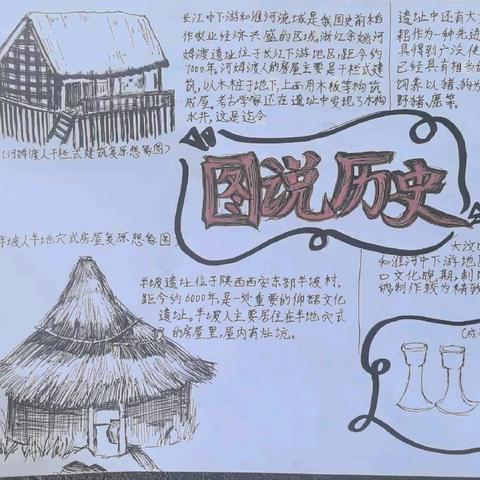 长江中下游和淮河流域是我国史前稻
作农业经济兴盛的区域,浙江余姚河
姆渡遗址位于长江下游地区,距今约
7000年,河姆渡人的房屋主要是干栏式建
筑,以木桩于地下,上面用木板等构筑
成屋。考古学家还在遗址中发现了木构
水井,这是迄今
遗址中还有大
耜作为一种先进
具得到广泛使
已经具有相当
饲养以猪、狗为
野猪、鹿等。
(河姆渡人干栏式建筑复原想象图)
图说历史
半坡人半地穴式房屋复原想象图
半坡遗址位于陕西西安东部半坡村。
距今约6000年,是一处重要的仰韶文化
遗址。半坡人主要居住在半地穴式
的房屋里,屋内有灶坑。
大汶口
和淮河中下游地区
口文化晚期,制陶
够制作较为精致